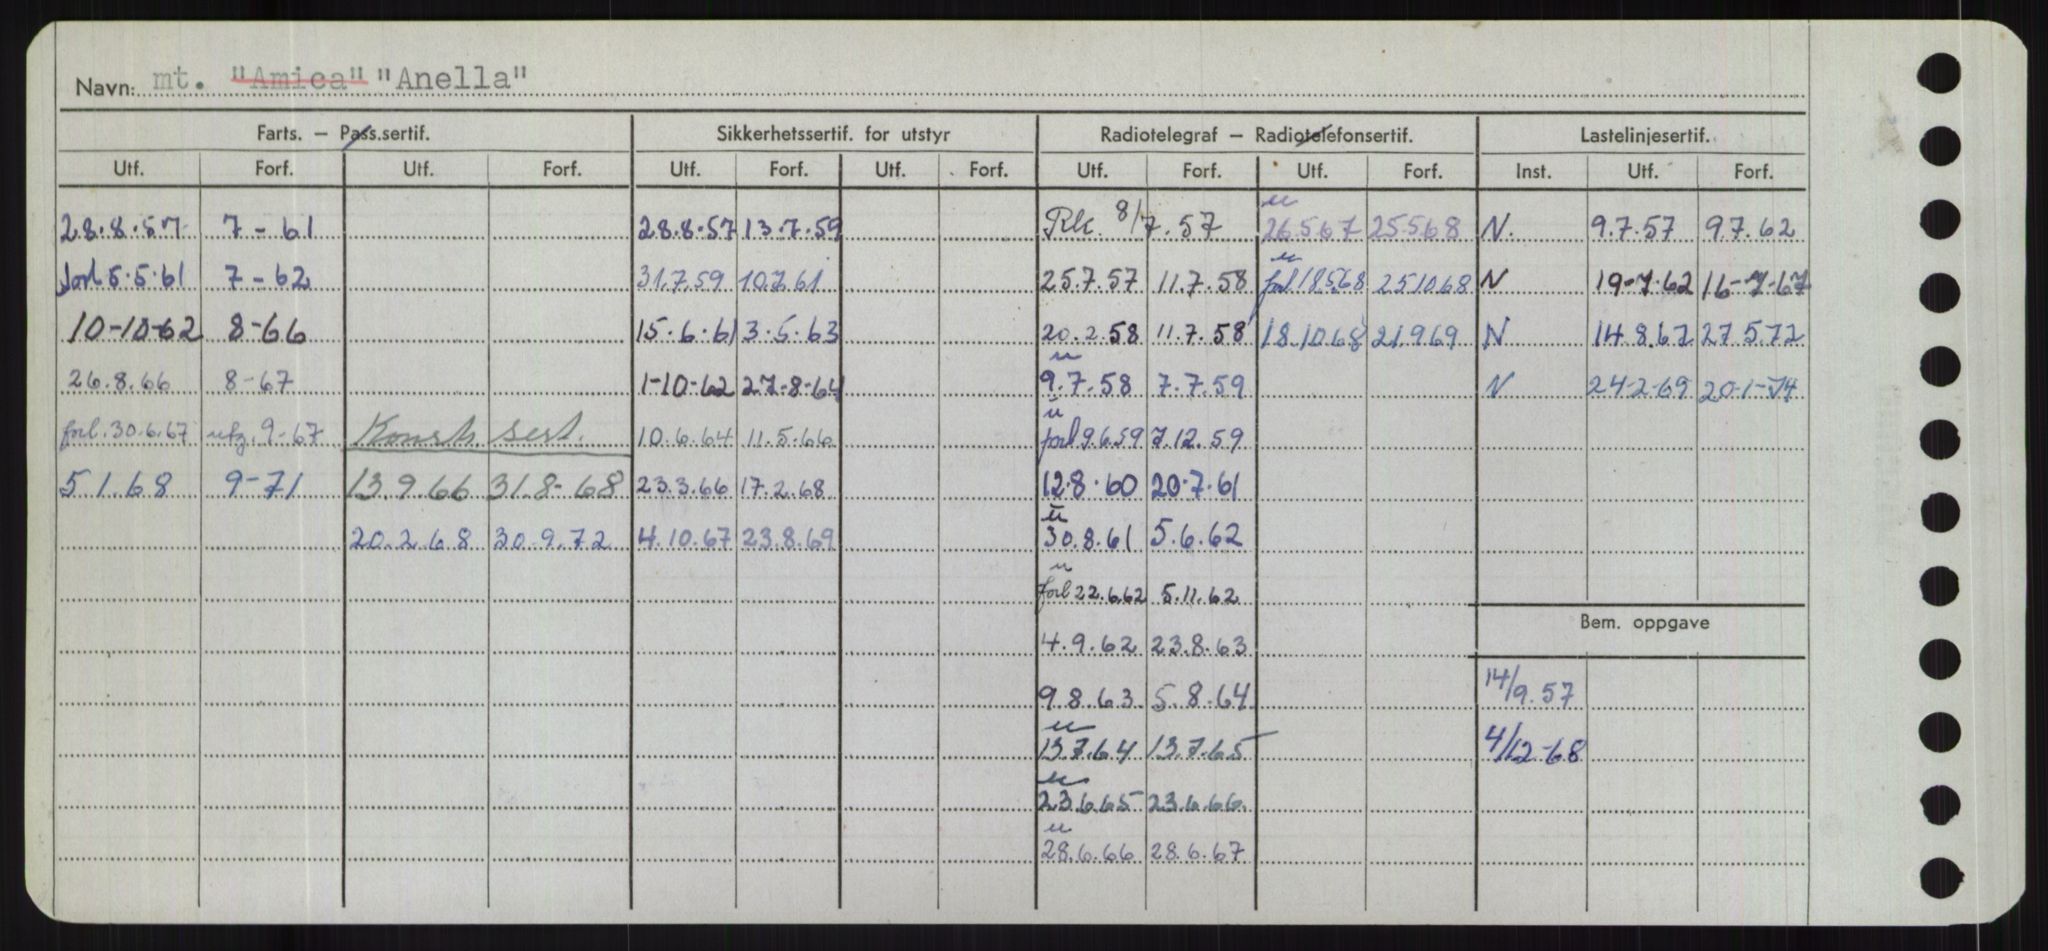 Navn: mt. "Amica" "Anella"
Farts. — Pass.sertif. Sikkerhetssertif. for utstyr Radiotelegraf — Radiotelefonsertif. Lastelinjesertif.
Utf. Forf. Utf. Forf. Utf. Forf. Utf. Forf. Utf. Forf. Utf. Forf. Inst. Utf. Forf.
u
28.8.57 7-61 28.8.57 13.7.59 Rk. 8/7.57 26.5.67 25.5.68 N. 9.7.57 9.7.62
u
forl 5.5.61 7-62 31.7.59 10.7.61 25.7.57 11.7.58 forl. 18.5.68 25.10.68 N 19-7-62 16-7-67
10-10-62 8-66 15.6.61 3.5.63 20.2.58 11.7.58 18.10.68 21.9.69 N 14.8.67 27.5.72
u
26.8.66 8-67 1-10-62 27-8-64 9.7.58 7.7.59 N 24-2-69 20-1-74
u
forl. 30.6.67 utg. 9-67 Konstr. sert. 10.6.64 11.5.66 forl 9.6.59 7.12.59
5.1.68 9-71 13.9.66 31.8-68 23.3.66 17.2.68 12.8.60 20.7.61
u
20.2.68 30.9.72 4.10.67 23.8.69 30.8.61 5.6.62
u
forl 22.6.62 5.11.62
Bem. oppgave
4.9.62 23.8.63
9.8.63 5.8.64 14/9.57
u
13.7.64 13.7.65 4/12-68
u
23.6.65 23.6.66
u
28.6.66 28.6.67